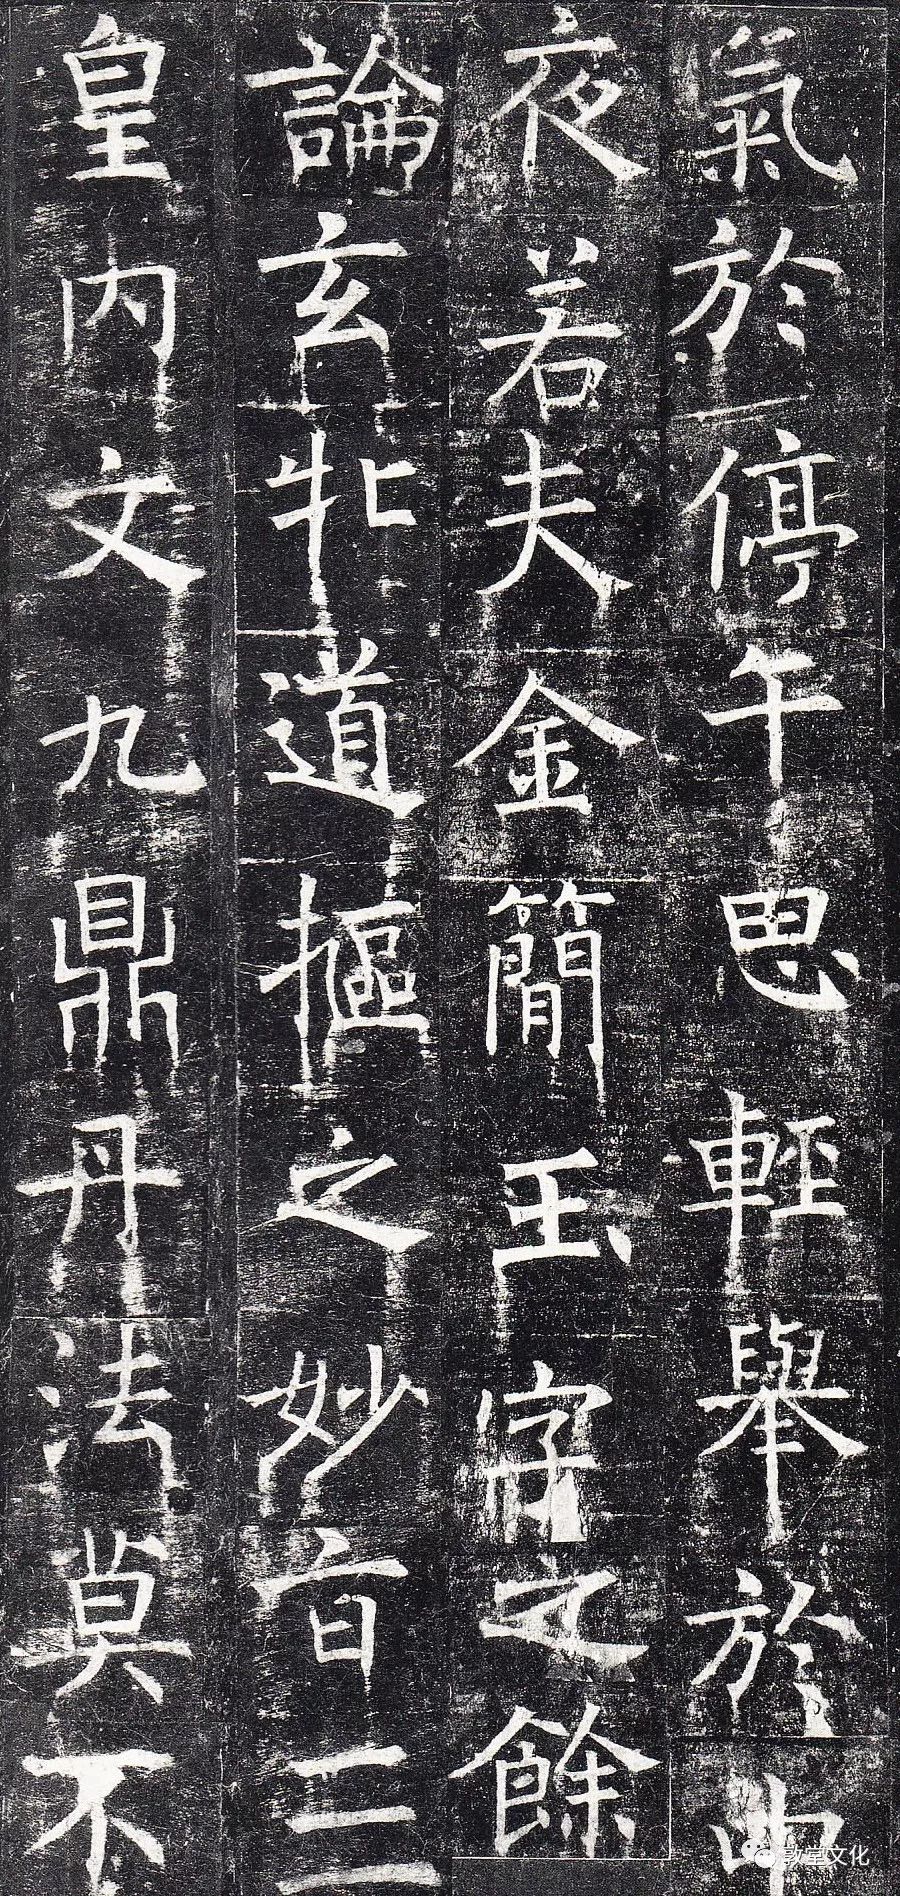 氣於停午思輕舉於中
夜若夫金簡玉字之餘
論玄牝道樞之妙旨三
皇內文九鼎丹法莫不
敦堂文化